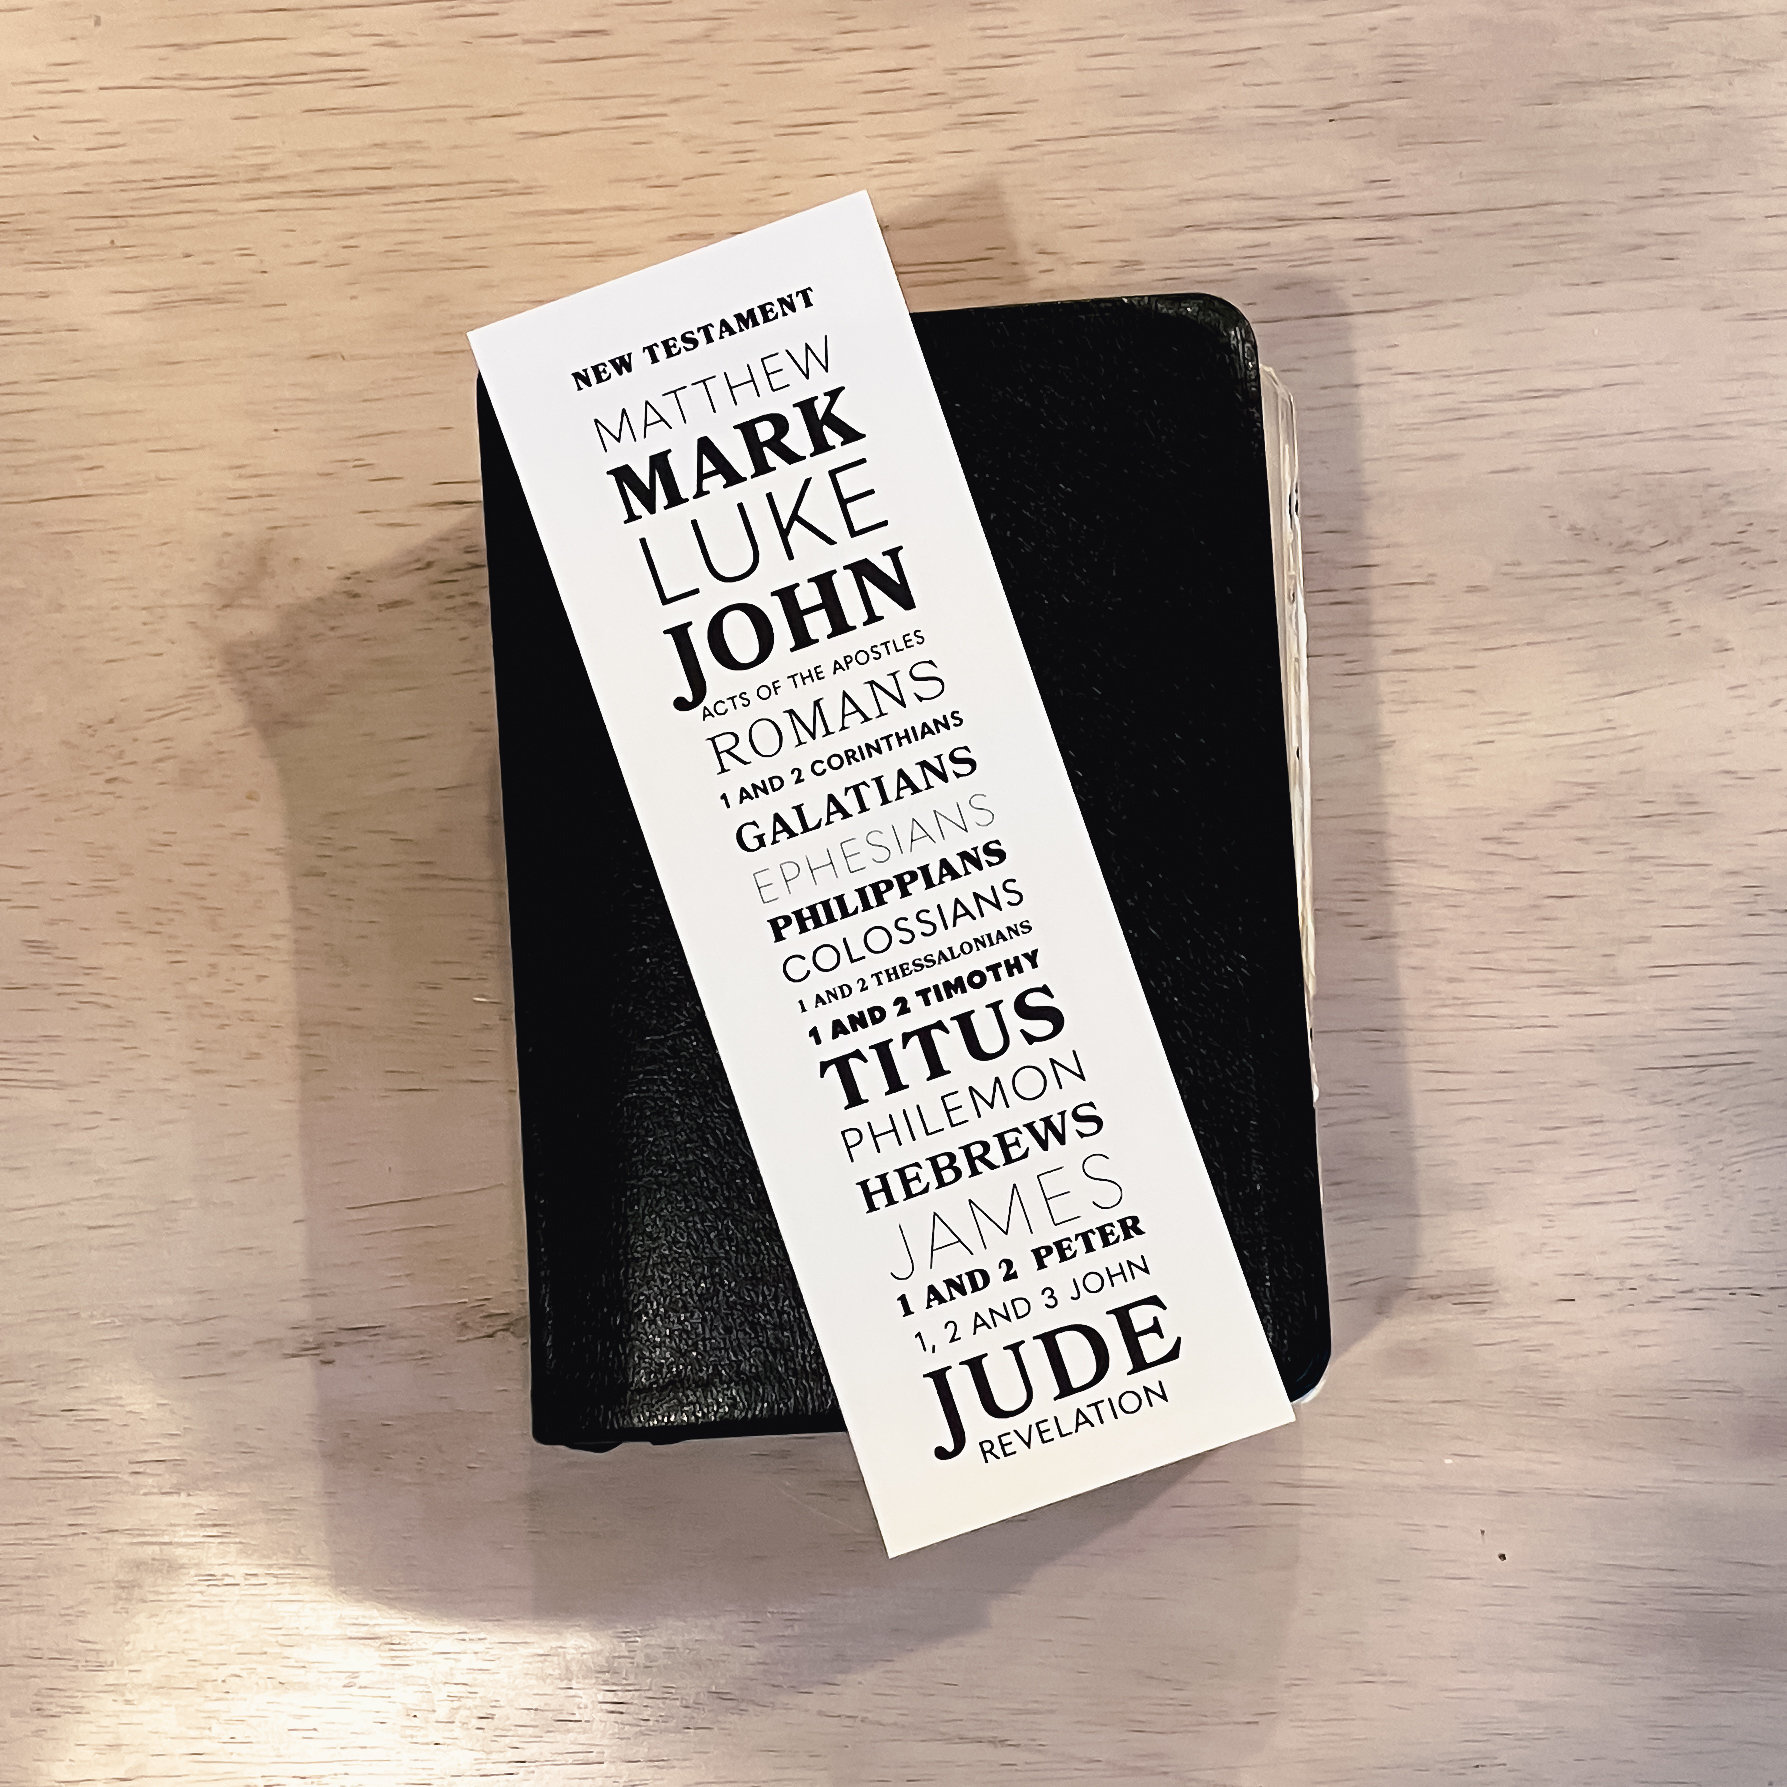 NEW TESTAMENT
MATTHEW
MARK
LUKE
JOHN
ACTS OF THE APOSTLES
ROMANS
1 AND 2 CORINTHIANS
GALATIANS
EPHESIANS
PHILIPPIANS
COLOSSIANS
1 AND 2 THESSALONIANS
1 AND 2 TIMOTHY
TITUS
PHILEMON
HEBREWS
JAMES
1 AND 2 PETER
1, 2 AND 3 JOHN
JUDE
REVELATION